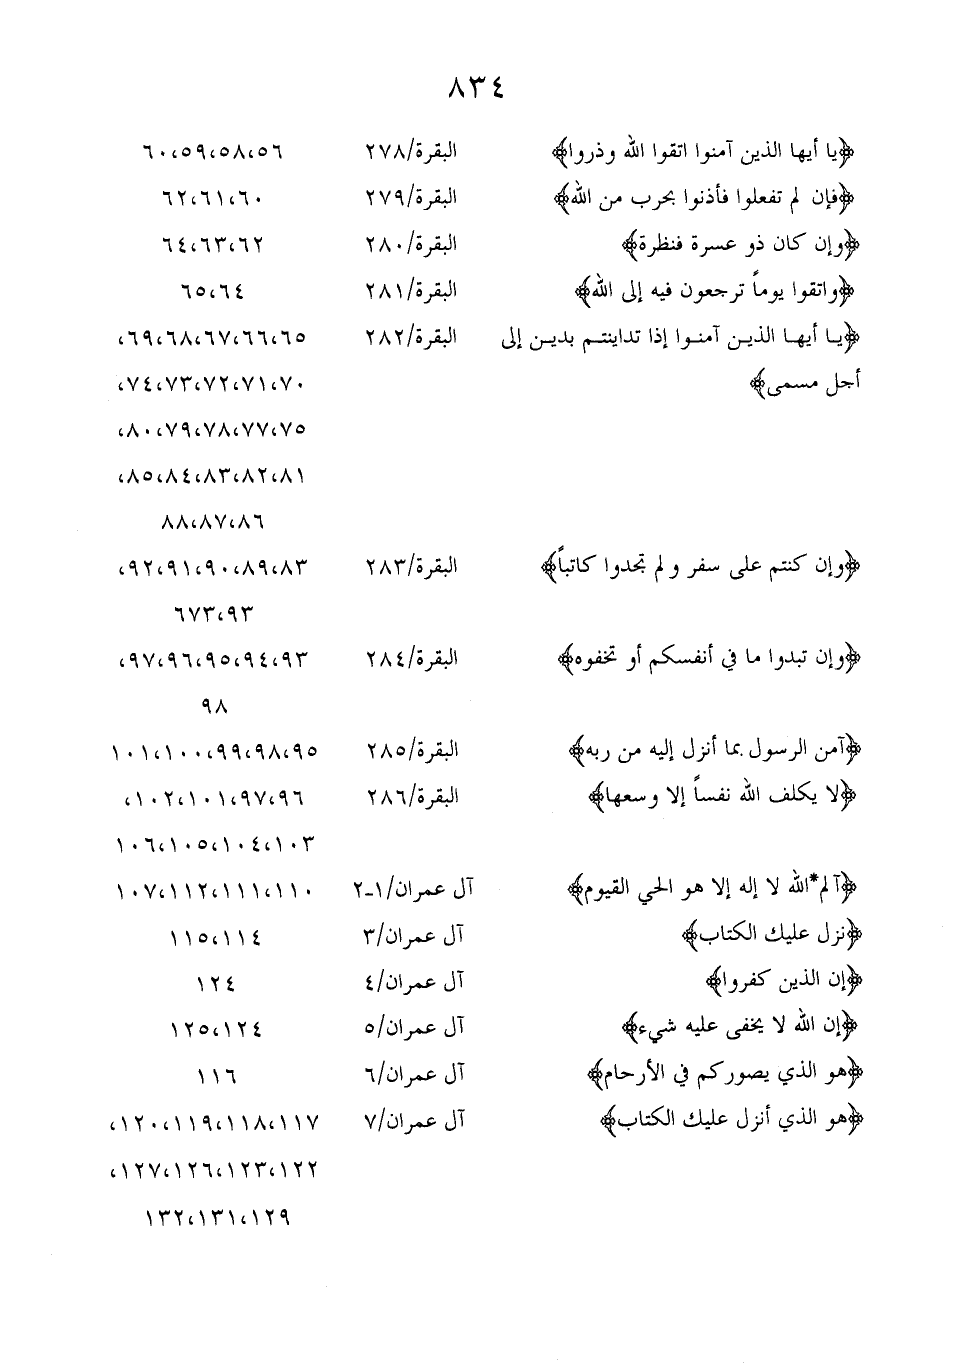 ٨٣٤
﴿يا أيها الذين آمنوا اتقوا الله وذروا﴾ البقرة/٢٧٨ ٥٦،٥٨،٥٩،٦٠
﴿فإن لم تفعلوا فأذنوا بحرب من الله﴾ البقرة/٢٧٩ ٦٠،٦١،٦٢
﴿وإن كان ذو عسرة فنظرة﴾ البقرة/٢٨٠ ٦٢،٦٣،٦٤
﴿واتقوا يوماً ترجعون فيه إلى الله﴾ البقرة/٢٨١ ٦٤،٦٥
﴿يا أيها الذين آمنوا إذا تداينتم بدين إلى البقرة/٢٨٢ ٦٥،٦٦،٦٧،٦٨،٦٩،
أجل مسمى﴾ ٧٠،٧١،٧٢،٧٣،٧٤،
٧٥،٧٧،٧٨،٧٩،٨٠،
٨١،٨٢،٨٣،٨٤،٨٥،
٨٦،٨٧،٨٨
﴿وإن كنتم على سفر ولم تجدوا كاتباً﴾ البقرة/٢٨٣ ٨٣،٨٩،٩٠،٩١،٩٢،
٩٣،٦٧٣
﴿وإن تبدوا ما في أنفسكم أو تخفوه﴾ البقرة/٢٨٤ ٩٣،٩٤،٩٥،٩٦،٩٧،
٩٨
﴿آمن الرسول بما أنزل إليه من ربه﴾ البقرة/٢٨٥ ٩٥،٩٨،٩٩،١٠٠،١٠١
﴿لا يكلف الله نفساً إلا وسعها﴾ البقرة/٢٨٦ ٩٦،٩٧،١٠١،١٠٢،
١٠٣،١٠٤،١٠٥،١٠٦
﴿آلم*الله لا إله إلا هو الحي القيوم﴾ آل عمران/١-٢ ١١٠،١١١،١١٢،١٠٧
﴿نزل عليك الكتاب﴾ آل عمران/٣ ١١٤،١١٥
﴿إن الذين كفروا﴾ آل عمران/٤ ١٢٤
﴿إن الله لا يخفى عليه شيء﴾ آل عمران/٥ ١٢٤،١٢٥
﴿هو الذي يصوركم في الأرحام﴾ آل عمران/٦ ١١٦
﴿هو الذي أنزل عليك الكتاب﴾ آل عمران/٧ ١١٧،١١٨،١١٩،١٢٠،
١٢٢،١٢٣،١٢٦،١٢٧،
١٢٩،١٣١،١٣٢